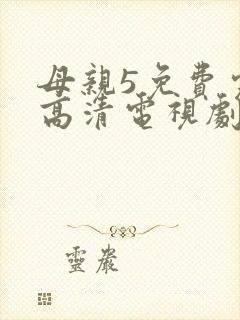 母親5免費
高清電視劇
靈巖